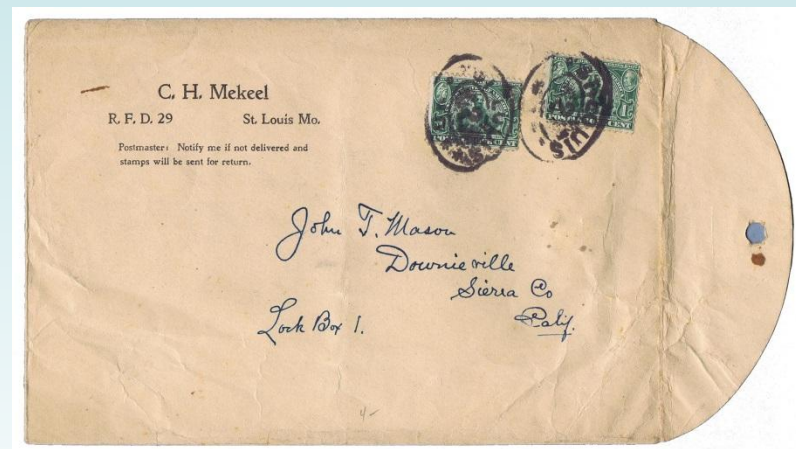 C. H. Mekeel
R. F. D. 29 St. Louis Mo.
Postmaster: Notify me if not delivered and
stamps will be sent for return.
ST. LOUIS
POSTAGE ONE CENT
John T. Mason
Downieville
Sierra Co
Calif.
Lock Box 1.
4-